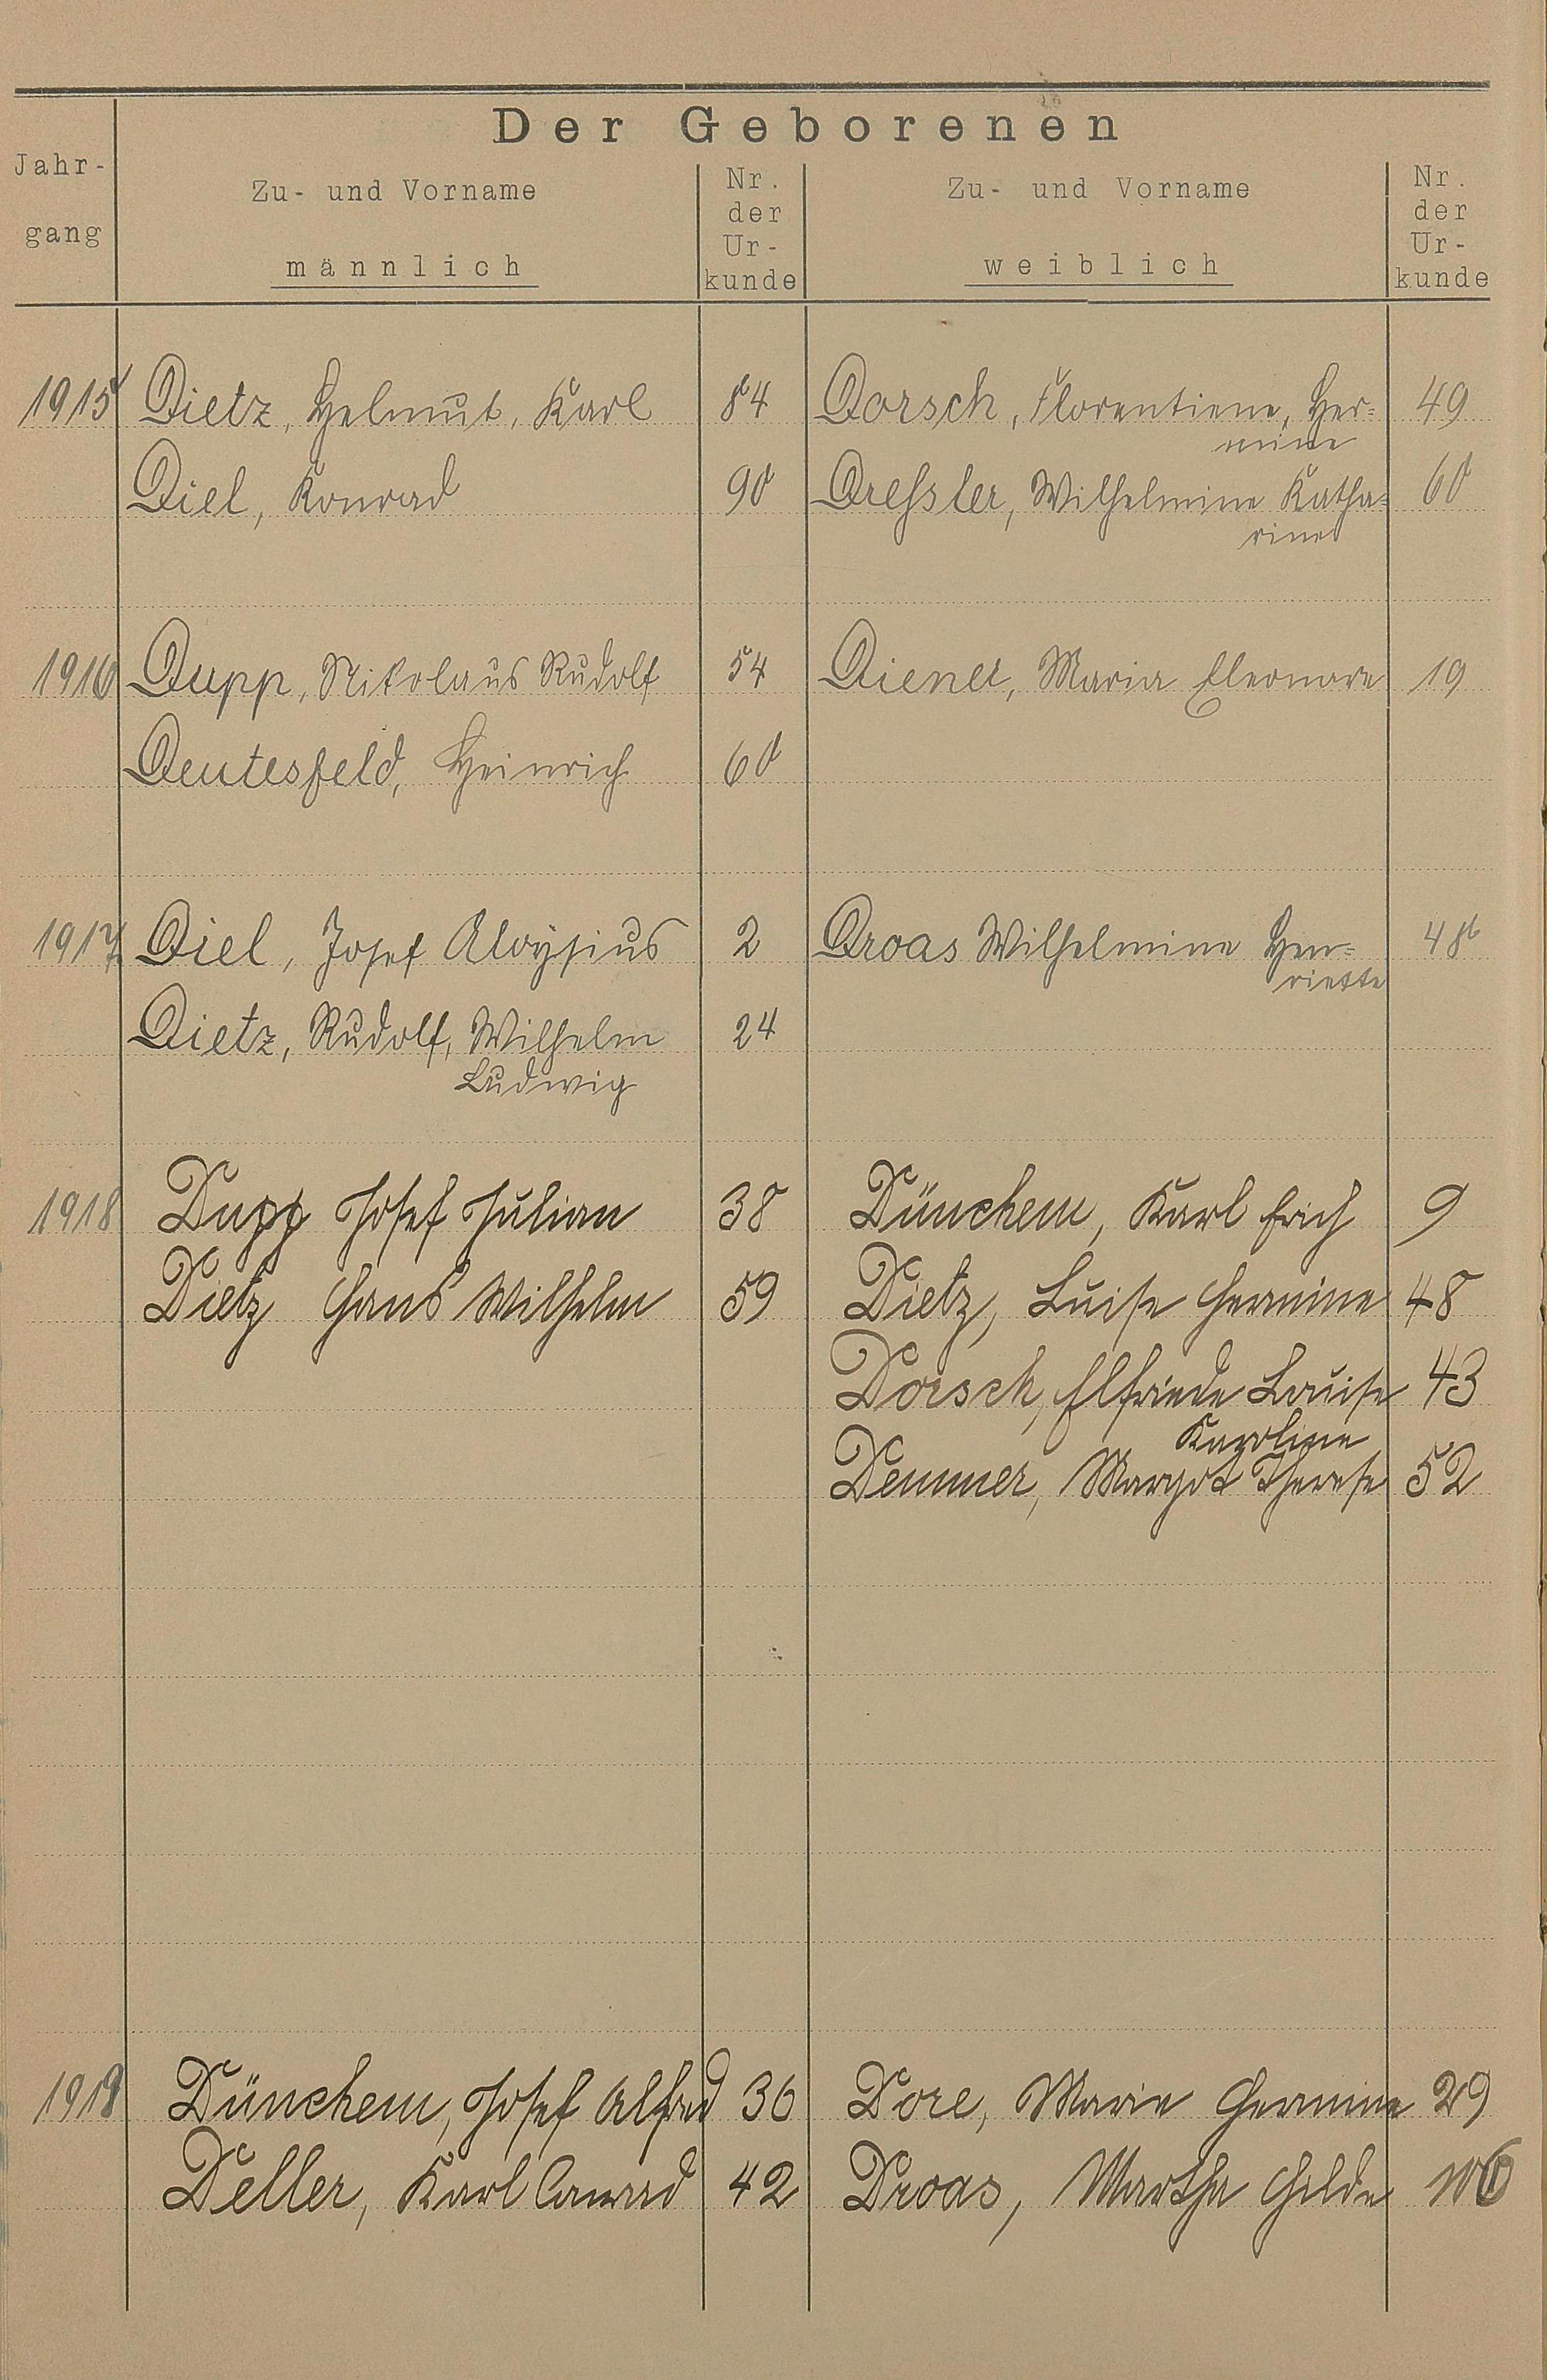 Der Geborenen
Jahr-
gang
Zu- und Vorname
männlich
Nr.
der
Ur-
kunde
Zu- und Vorname
weiblich
Nr.
der
Ur-
kunde
1915 Dietz, Helmut, Karl 84 Dorsch, Florentiene, Her=
mine 49
Diel, Konrad 90 Dressler, Wilhelmine Katha=
rina 60
1916 Dupp, Nikolaus Rudolf 54 Diener, Maria Eleonore 19
Deutesfeld, Heinrich 60
1917 Diel, Josef Aloysius 2 Droas Wilhelmine Hen=
riette 48
Dietz, Rudolf, Wilhelm 24
Ludwig
1918 Dupp Josef Julian 38 Dünchem, Karl Erich 9
Dietz Hans Wilhelm 59 Dietz, Luise Hermine 48
Dorsch, Elfriede Louise 43
Karoline
Demmer, Margot Therese 52
1919 Dünchem, Josef Alfred 36 Dore, Marie Hermine 29
Deller, Karl Conrad 42 Droas, Martha Hilde